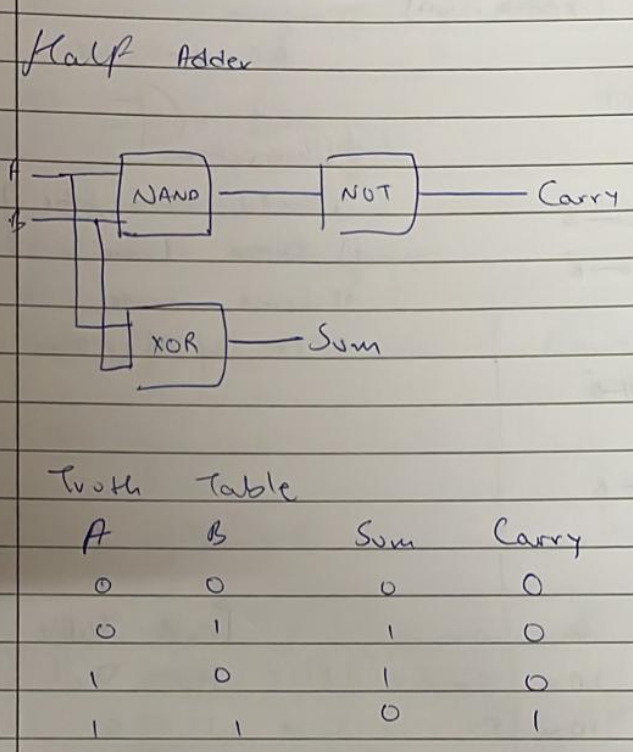 Half Adder
A
NAND NOT Carry
B
XOR Sum
Truth Table
A B Sum Carry
0 0 0 0
0 1 1 0
1 0 1 0
1 1 0 1